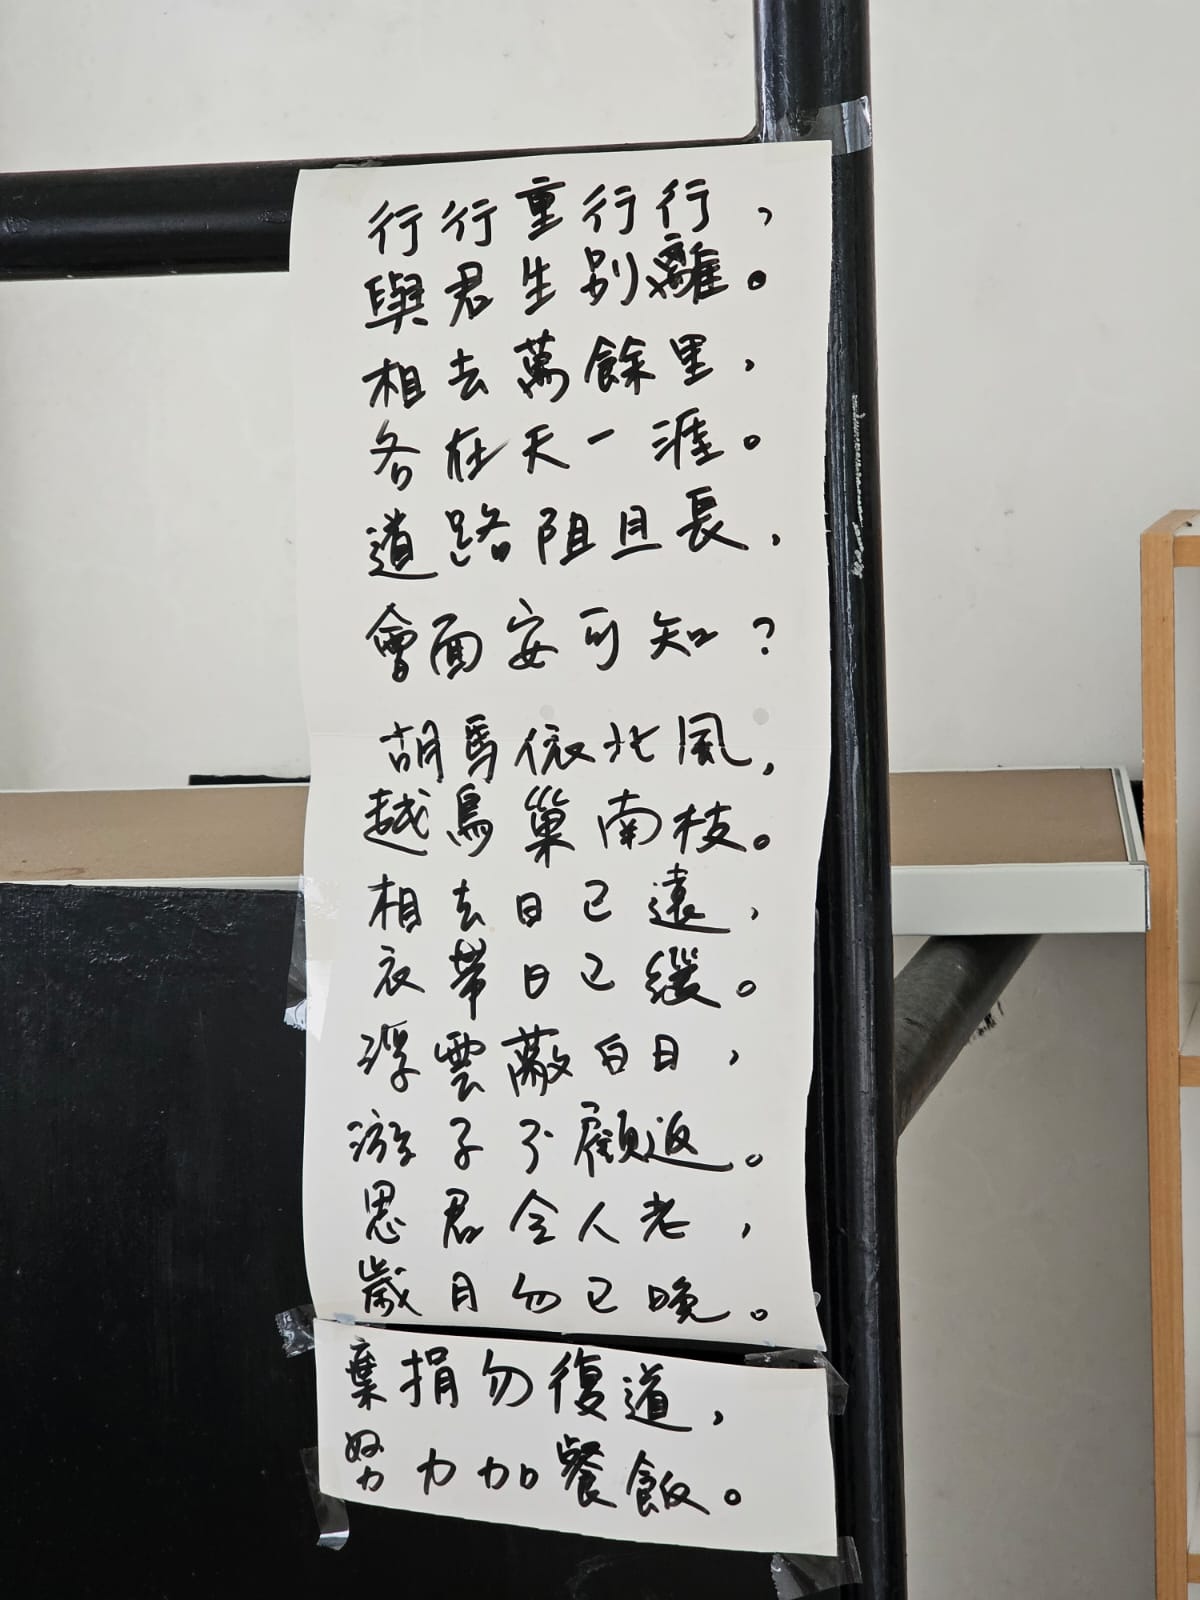 行行重行行，
與君生別離。
相去萬餘里，
各在天一涯。
道路阻且長，
會面安可知？
胡馬依北風，
越鳥巢南枝。
相去日已遠，
衣帶日已緩。
浮雲蔽白日，
游子不顧返。
思君令人老，
歲月勿已晚。
棄捐勿復道，
努力加餐飯。